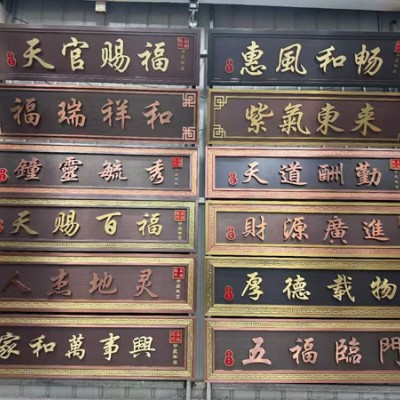 天官赐福
惠風和畅
福瑞祥和
紫氣東来
鐘靈毓秀
天道酬勤
天赐百福
財源廣進
人杰地灵
厚德載物
家和萬事興
五福臨門